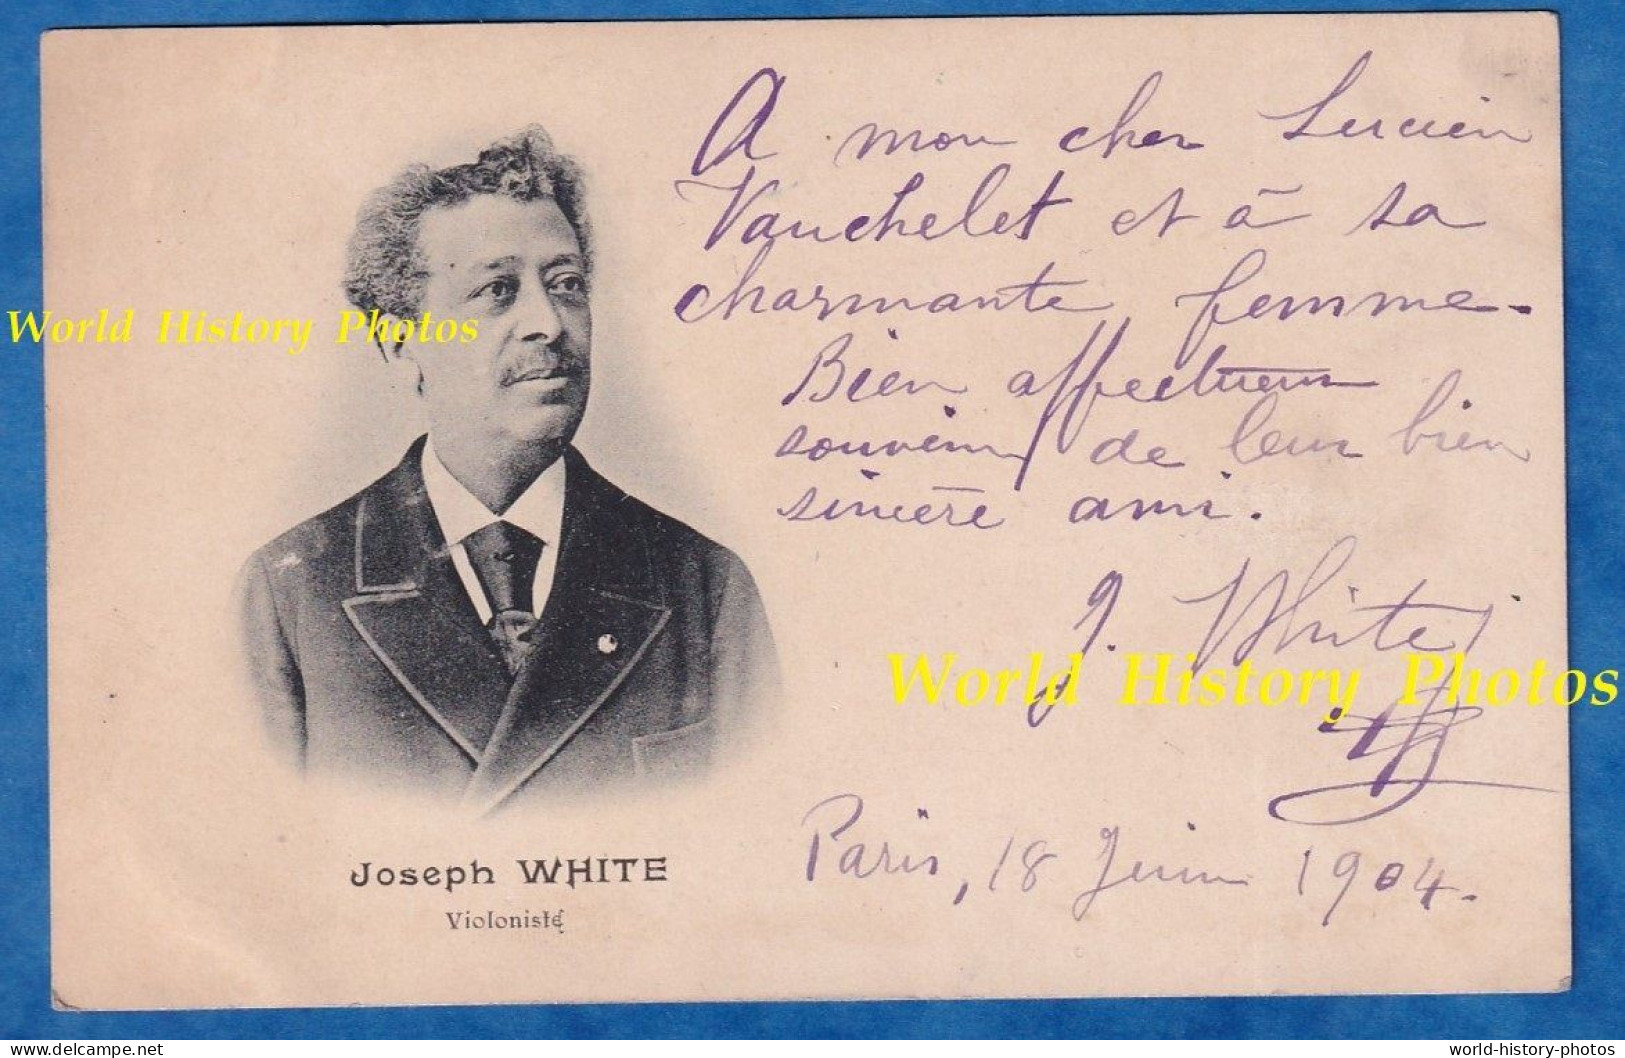 A mon cher Lucien
Vauchelet et à sa
charmante femme.
Bien affectueux
souvenir de leur bien
sincère ami.
J. White
Paris, 18 Juin 1904.
Joseph WHITE
Violoniste
World History Photos
World History Photos
www.delcampe.net
world-history-photos